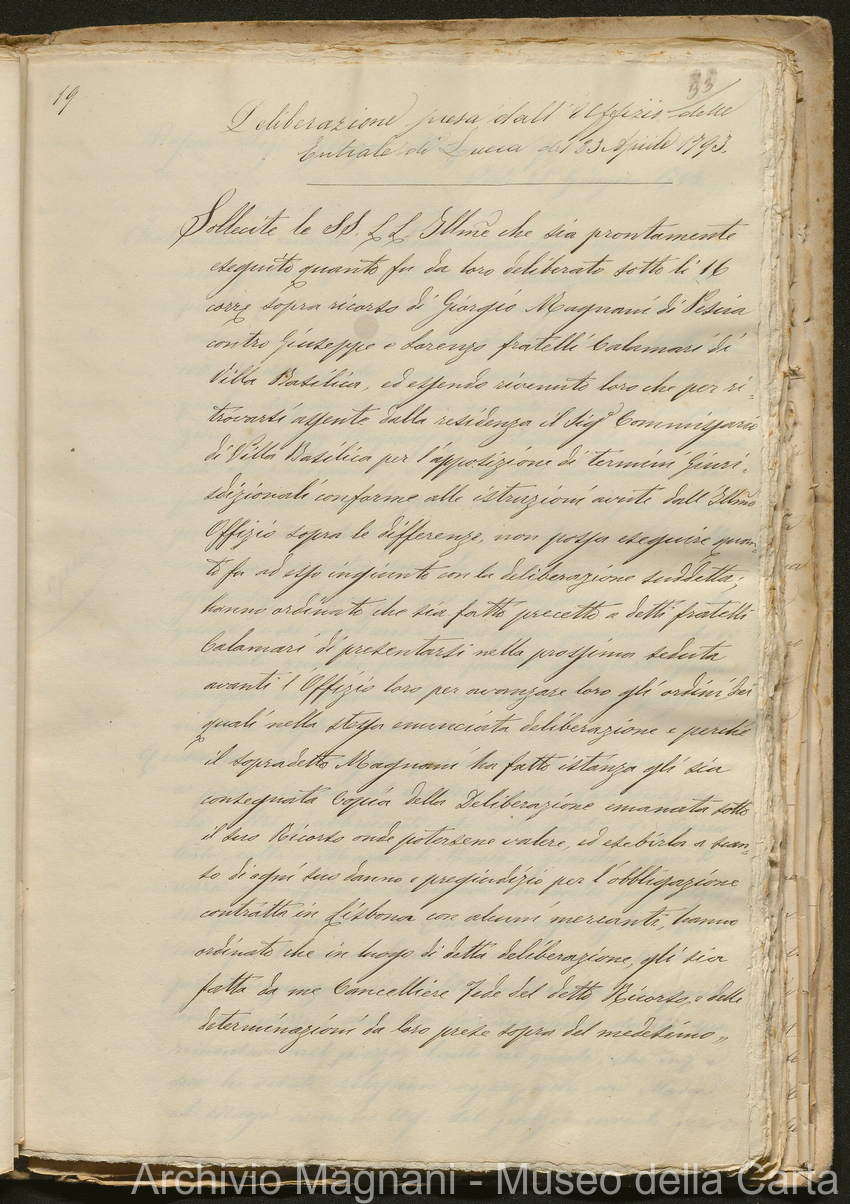 19
33
Deliberazione presa dall'Uffizio delle
Entrate di Lucca del 23 Aprile 1793.
Sollecite le SS. LL. Illme che sia prontamente
eseguito quanto fu da loro deliberato sotto li 16
corre sopra ricorso di Giorgio Magnani di Pescia
contro Giuseppe e Lorenzo fratelli Calamari di
Villa Basilica, ed essendo rivenuto loro che per ri-
trovarsi assente dalla residenza il Sigr Commissario
di Villa Basilica per l'apposizione di termini Giuri-
sdizionali conforme alle istruzioni avute dall'Illmo
Offizio sopra le differenze, non possa eseguire quan-
to fu ad esso ingiunto con la deliberazione suddetta;
hanno ordinato che sia fatto precetto a detti fratelli
Calamari di presentarsi nella prossima seduta
avanti l'Offizio loro per avanzare loro gli ordini dei
quali nella stessa enunciata deliberazione e perchè
il sopradetto Magnani ha fatto istanza gli sia
consegnata Copia della Deliberazione emanata sotto
il suo Ricorso onde potersene valere, ed esibirla a scan-
so di ogni suo danno e pregiudizio per l'obbligazione
contratta in Lisbona con alcuni mercanti, hanno
ordinato che in luogo di detta deliberazione, gli sia
fatta da me Cancelliere Fede del detto Ricorso, e delle
determinazioni da loro prese sopra del medesimo „
Archivio Magnani - Museo della Carta